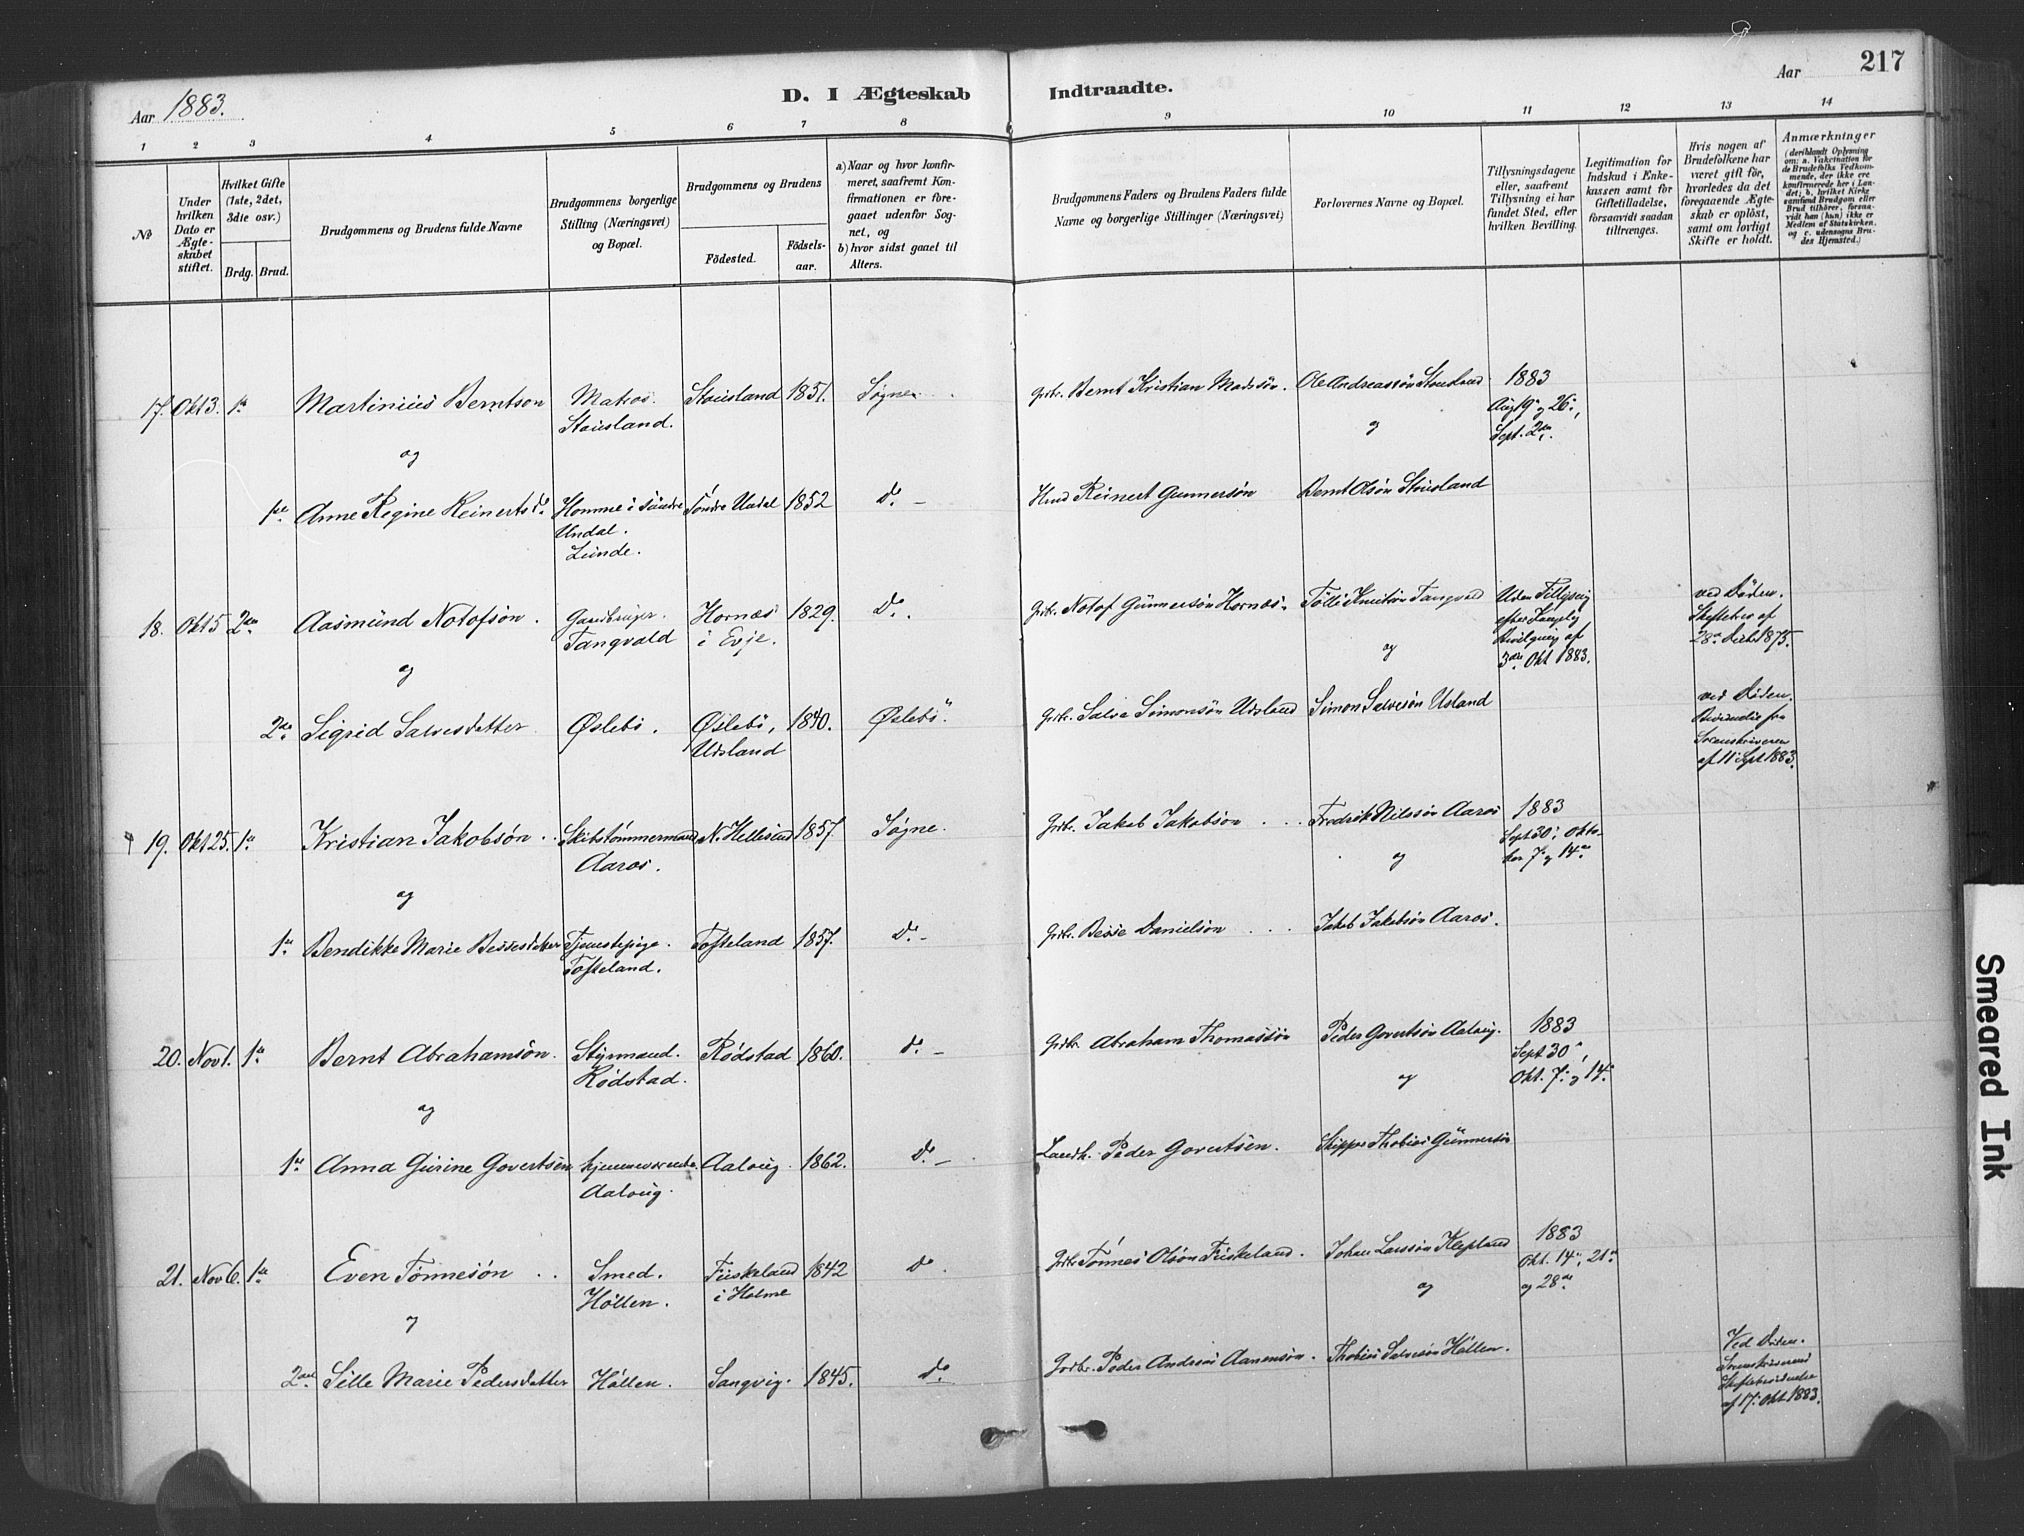 Aar 1883.
D. I Ægteskab
Indtraadte.
Aar
217
1 2 3 4 5 6 7 8 9 10 11 12 13 14
No
Under hvilken Dato er Ægteskabet stiftet.
Hvilket Gifte (1ste, 2det, 3die osv.)
Brdg. Brud.
Brudgommens og Brudens fulde Navne
Brudgommens borgerlige Stilling (Næringsvei) og Bopæl.
Brudgommens og Brudens
Födested.
Födselsaar.
a) Naar og hvor konfirmeret, saafremt Konfirmationen er foregaaet udenfor Sognet, og
b) hvor sidst gaaet til Alters.
Brudgommens Faders og Brudens Faders fulde Navne og borgerlige Stillinger (Næringsvei)
Forlovernes Navne og Bopæl.
Tillysningsdagene eller, saafremt Tillysning ei har fundet Sted, efter hvilken Bevilling.
Legitimation for Indskud i Enkekassen samt for Giftetilladelse, forsaavidt saadan tiltrænges.
Hvis nogen af Brudefolkene har været gift för, hvorledes da det foregaaende Ægteskab er oplöst, samt om lovligt Skifte er holdt.
Anmærkninger
(deriblandt Oplysning om: a. Vakcination for Brudefolks Vedkommende, der ikke ere konfirmerede her i Landet; b. hvilket Kirkesamfund Brudgom eller Brud tilhörer, forsaavidt han (hun) ikke er Medlem af Statskirken. og c. udensogns Brudes Hjemsted.)
17. Okt 3. 1ste Martinius Berntson Matros. Stousland. Stousland 1851. Søgne Grdbr. Bernt Kristian Madssön. Ole Andreassön Stousland 1883 Aug 19de og 26de, Sept. 2den.
og
og
1ste Anne Regine Reinertsdr. Homme i Söndre Undal. Lunde. Söndre Undal 1852 do - Hmd Reinert Gunnersön Bernt Olsön Stousland
18. Okt 5 2den Aasmund Notofsön. Gaardbruger. Tangvald Hornæs i Evje. 1829. Do. Grdbr. Notof Gunnersön Hornæs Tölli Knutsön Tangvald Uden Tillysning efter Kongelig Bevilgning af 3die Okt 1883. ved Döden. Skiftebrev af 28de Decbr 1875.
og
og
2den Sigrid Salvesdatter Øslebö. Øslebö, Udsland 1840. Øslebö. Grdbr. Salve Simonsön Udsland Simon Salvesön Udsland ved Döden. Bevidnelse fra Sorenskriveren af 11 Sept 1883.
19. Okt 25. 1ste Kristian Jakobsön Skibstømmermand Aaros. N. Hellesland 1857 Søgne. Grdbr. Jakob Jakobsön Fredrik Nilssön Aaros 1883 Sept 30te, Oktober 7de og 14de
og
og
1ste Bendikke Marie Bessesdatter Tjenestepige. Tofteland. Tofteland 1857. Do - Grdbr. Besse Danielsön Jakob Jakobsön Aaros.
20. Nov 1. 1ste Bernt Abrahamsön. Styrmand. Rödstad. Rödstad 1860. do - Grdbr. Abraham Thomassön Peder Govertsön Aalvig. 1883 Sept 30te, Okt. 7de og 14de
og
og
1ste Anna Gurine Govertsen hjemmeværende. Aalvig. Aalvig. 1862. Do - Landh. Peder Govertsen. Skipper Thobias Gunnersön
21. Nov 6. 1ste Even Tönnesön Smed. Höllen. Fuskeland i Holme 1842 do. Grdbr Tönnes Olsön Fuskeland. Johan Larssön Klepland 1883 Okt. 14de, 21de og 28de
og
og
2den Sille Marie Pedersdatter Höllen. Langvig. 1845. do. Grdbr. Peder Andreas Aanensön. Thobias Salvesön Höllen. Ved Döden. Sorenskriverens Skiftebevidnelse af 17de Okt 1883.
Smeared Ink